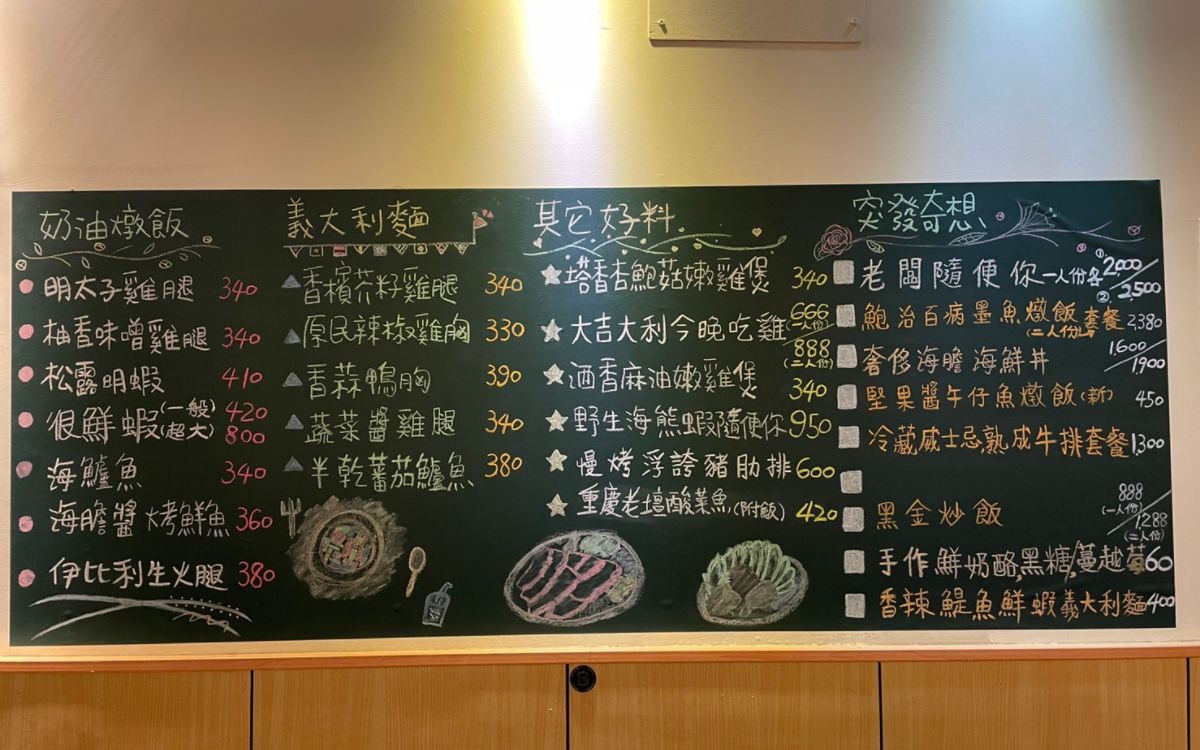 奶油燉飯
明太子雞腿 340
柚香味噌雞腿 340
松露明蝦 410
很鮮蝦(一般) 420
(超大) 800
海鱸魚 340
海膽醬烤鮮魚 360
伊比利生火腿 380
義大利麵
香檳芥籽雞腿 340
原民辣椒雞胸 330
香蒜鴨胸 390
蔬菜醬雞腿 340
半乾蕃茄鱸魚 380
其它好料
塔香杏鮑菇嫩雞煲 340
大吉大利今晚吃雞 666(一人份)/888(二人份)
酒香麻油嫩雞煲 340
野生海熊蝦隨便你 950
慢烤浮誇豬肋排 600
重慶老壇酸菜魚(附飯) 420
突發奇想
老闆隨便你一人份各 ①2,000/②2,500
鮑治百病墨魚燉飯(二人份)套餐 2380
奢侈海膽海鮮丼 1,600/1900
堅果醬午仔魚燉飯(新) 450
冷藏威士忌熟成牛排套餐 1,300
黑金炒飯 888(一人份)/1,288(二人份)
手作鮮奶酪,黑糖/蔓越莓 60
香辣鯷魚鮮蝦義大利麵 400